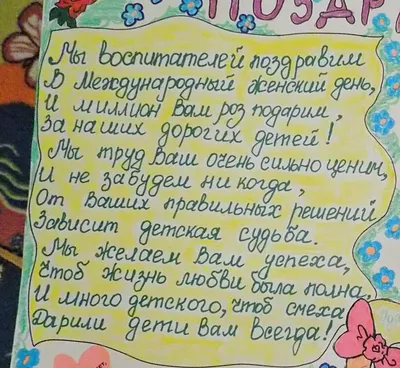 ПОЗДРА
Мы воспитателей поздравим
В Международный женский день,
И миллион Вам роз подарим,
За наших дорогих детей!
Мы труд Ваш очень сильно ценим,
И не забудем никогда,
От Ваших правильных решений
Зависит детская судьба.
Мы желаем Вам успеха,
Чтоб жизнь любви была полна,
И много детского, чтоб смеха
Дарили дети Вам всегда!